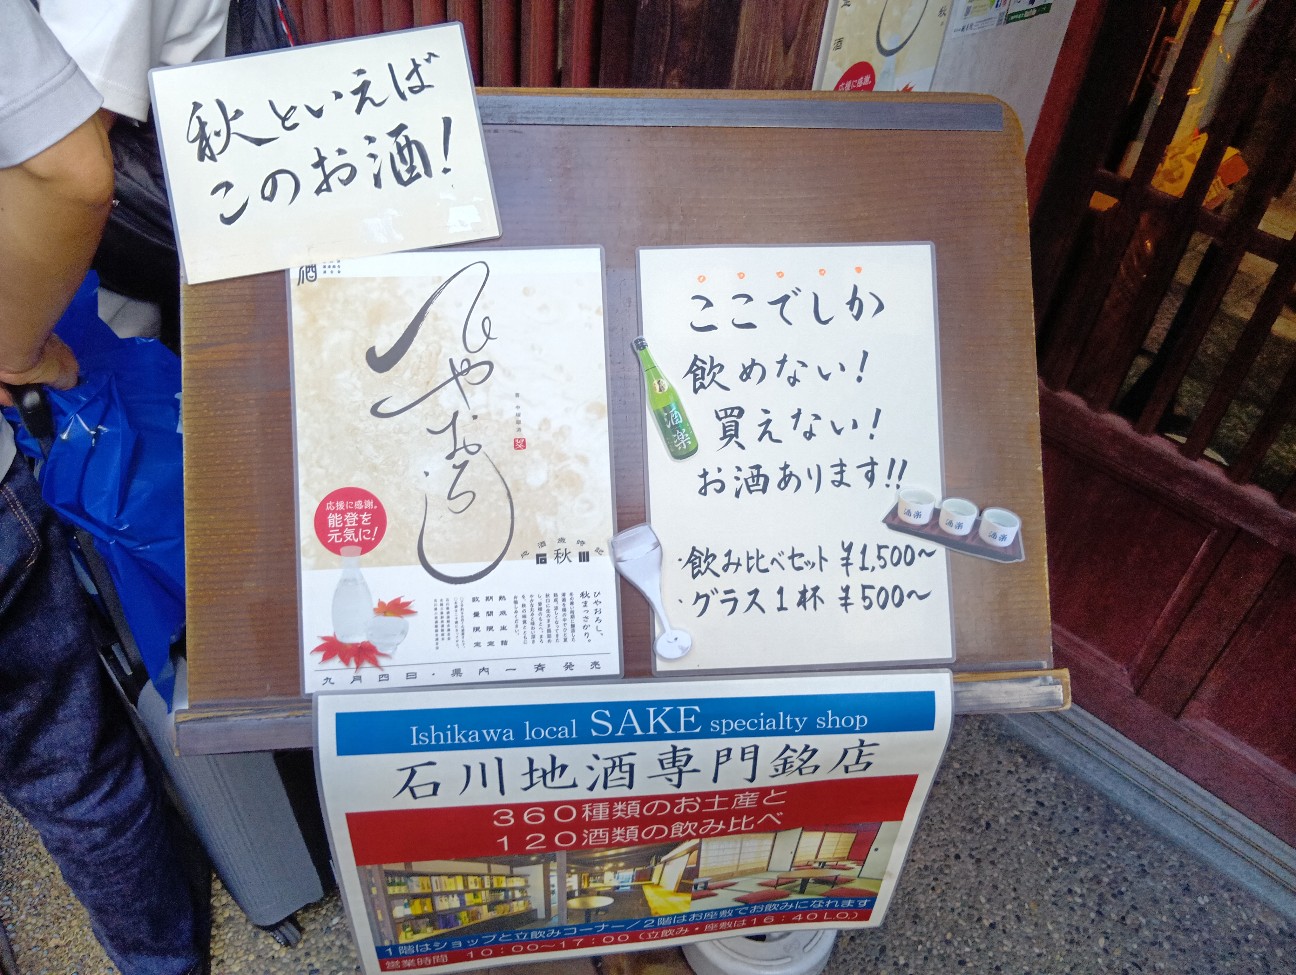 秋といえば
このお酒!
酒
ひやおろし
応援に感謝。
能登を
元気に!
石秋川
ひやおろし、
秋まっさかり。
熟成生詰
期間限定
数量限定
九月四日・県内一斉発売
ここでしか
飲めない!
買えない!
お酒あります!!
酒楽
・飲み比べセット ¥1,500〜
・グラス1杯 ¥500〜
Ishikawa local SAKE specialty shop
石川地酒専門銘店
360種類のお土産と
120酒類の飲み比べ
1階はショップと立飲みコーナー/2階はお座敷でお飲みになれます
営業時間 10:00〜17:00(立飲み・座敷は16:40L.O.)